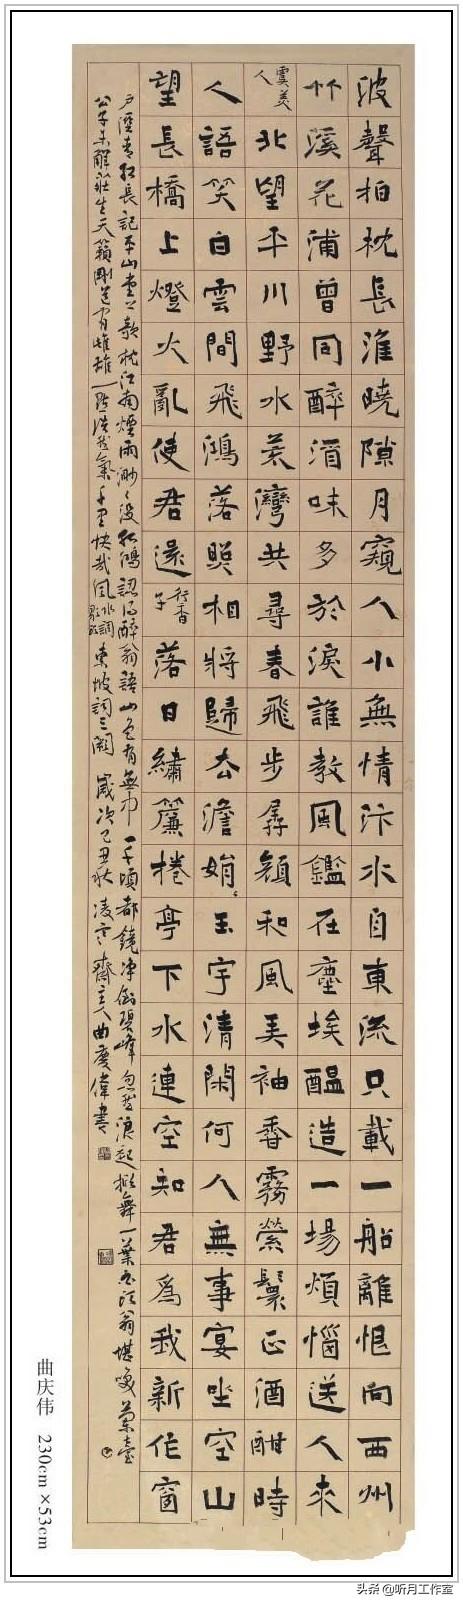 波聲拍枕長淮曉隙月窺人小無情汴水自東流只載一船離恨向西州
竹溪花浦曾同醉酒味多於淚誰教風鑑在塵埃醞造一場煩惱送人來
虞美人
北望平川野水荒灣共尋春飛步孱顏和風弄袖香霧縈鬟正酒酣時
人語笑白雲間飛鴻落照相將歸去澹娟〻玉宇清閑何人無事宴坐空山
望長橋上燈火亂使君還
行香子
落日繡簾捲亭下水連空知君為我新作窗
戶溼青紅長記平山堂上欹枕江南煙雨渺〻沒孤鴻認得醉翁語山色有無中一千頃都鏡淨倒碧峰忽然浪起掀舞一葉白頭翁堪笑蘭臺
公子未解莊生天籟剛道有雌雄一點浩然氣千里快哉風
東坡詞三闋 歲次己丑秋凌雲齋主人曲慶偉書
曲庆伟 230cm×53cm
头条 @听月工作室